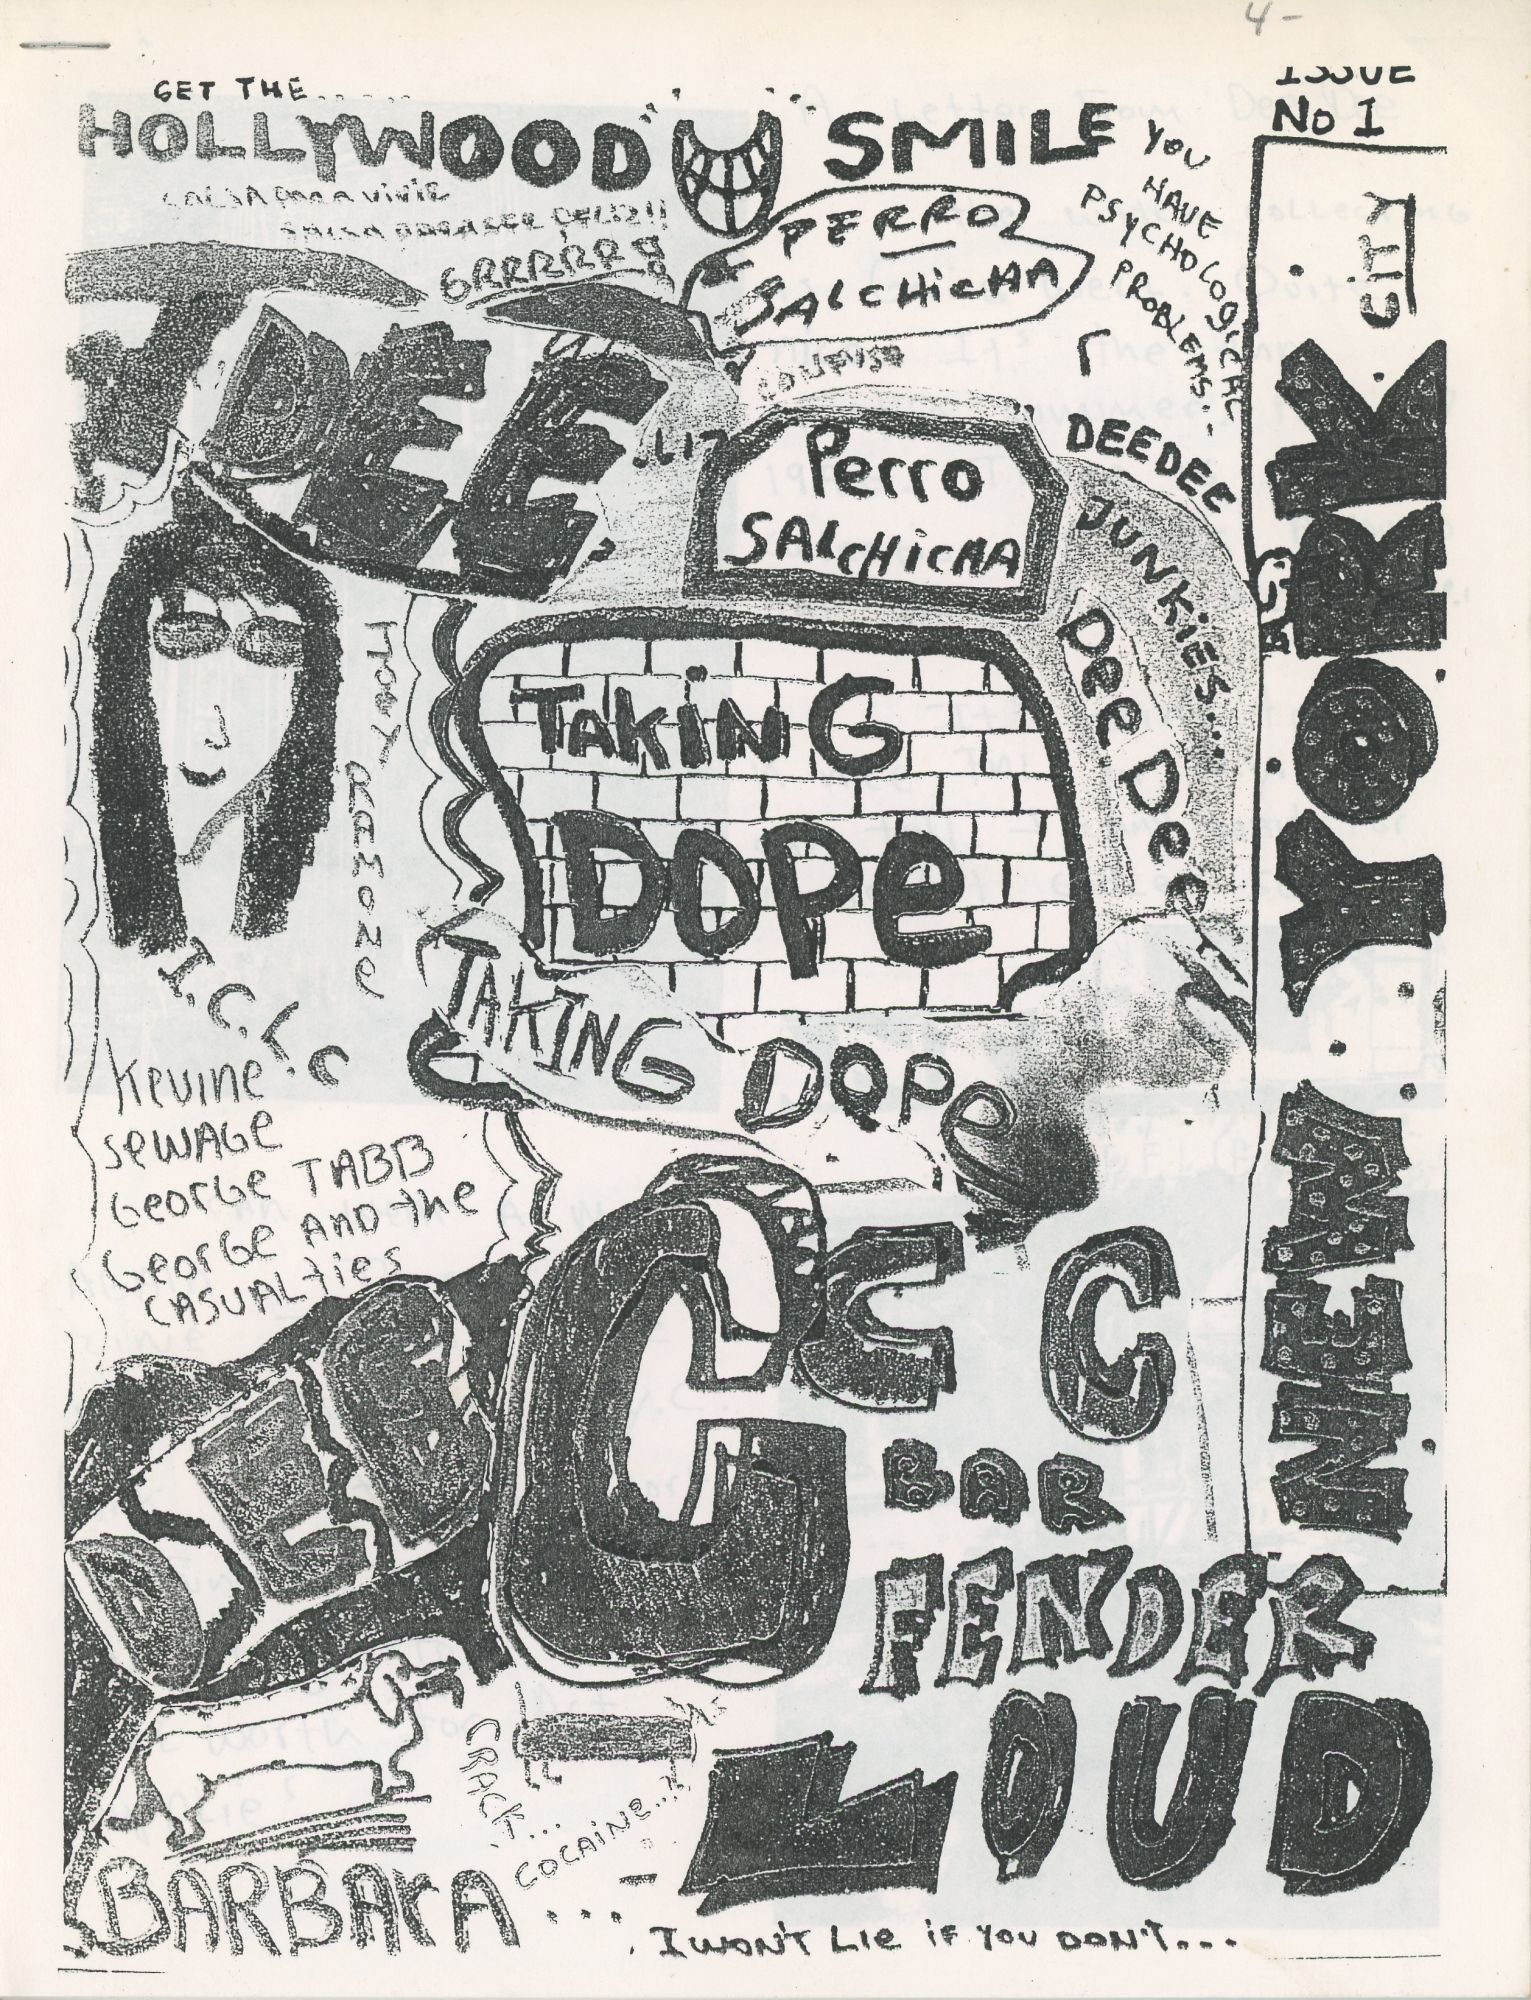 4-
ISSUE
No 1
GET THE.....
HOLLYWOOD SMILE
SALSA PARA VIVIR
GRRRRRR
PERRO
SALCHICHA
YOU
HAVE
PSYCHOLOGICAL
PROBLEMS..
DEE DEE
Perro
SALCHICHA
DEEDEE
JUNKiES...
DeeDee
NEW. YORK. CiTY
JOEY
RAMONE
TAKiNG
DOPe
TAKING DOPe
I.C.L.C
Kevine
SeWAGe
GeorGe TABB
GeorGe AND the
CASUALties
DEE DEE
G C C
BAR
FENDER
LOUD
CRACK...
COCAINe...
BARBArA ...
I WON'T Lie iF YOU DON'T...